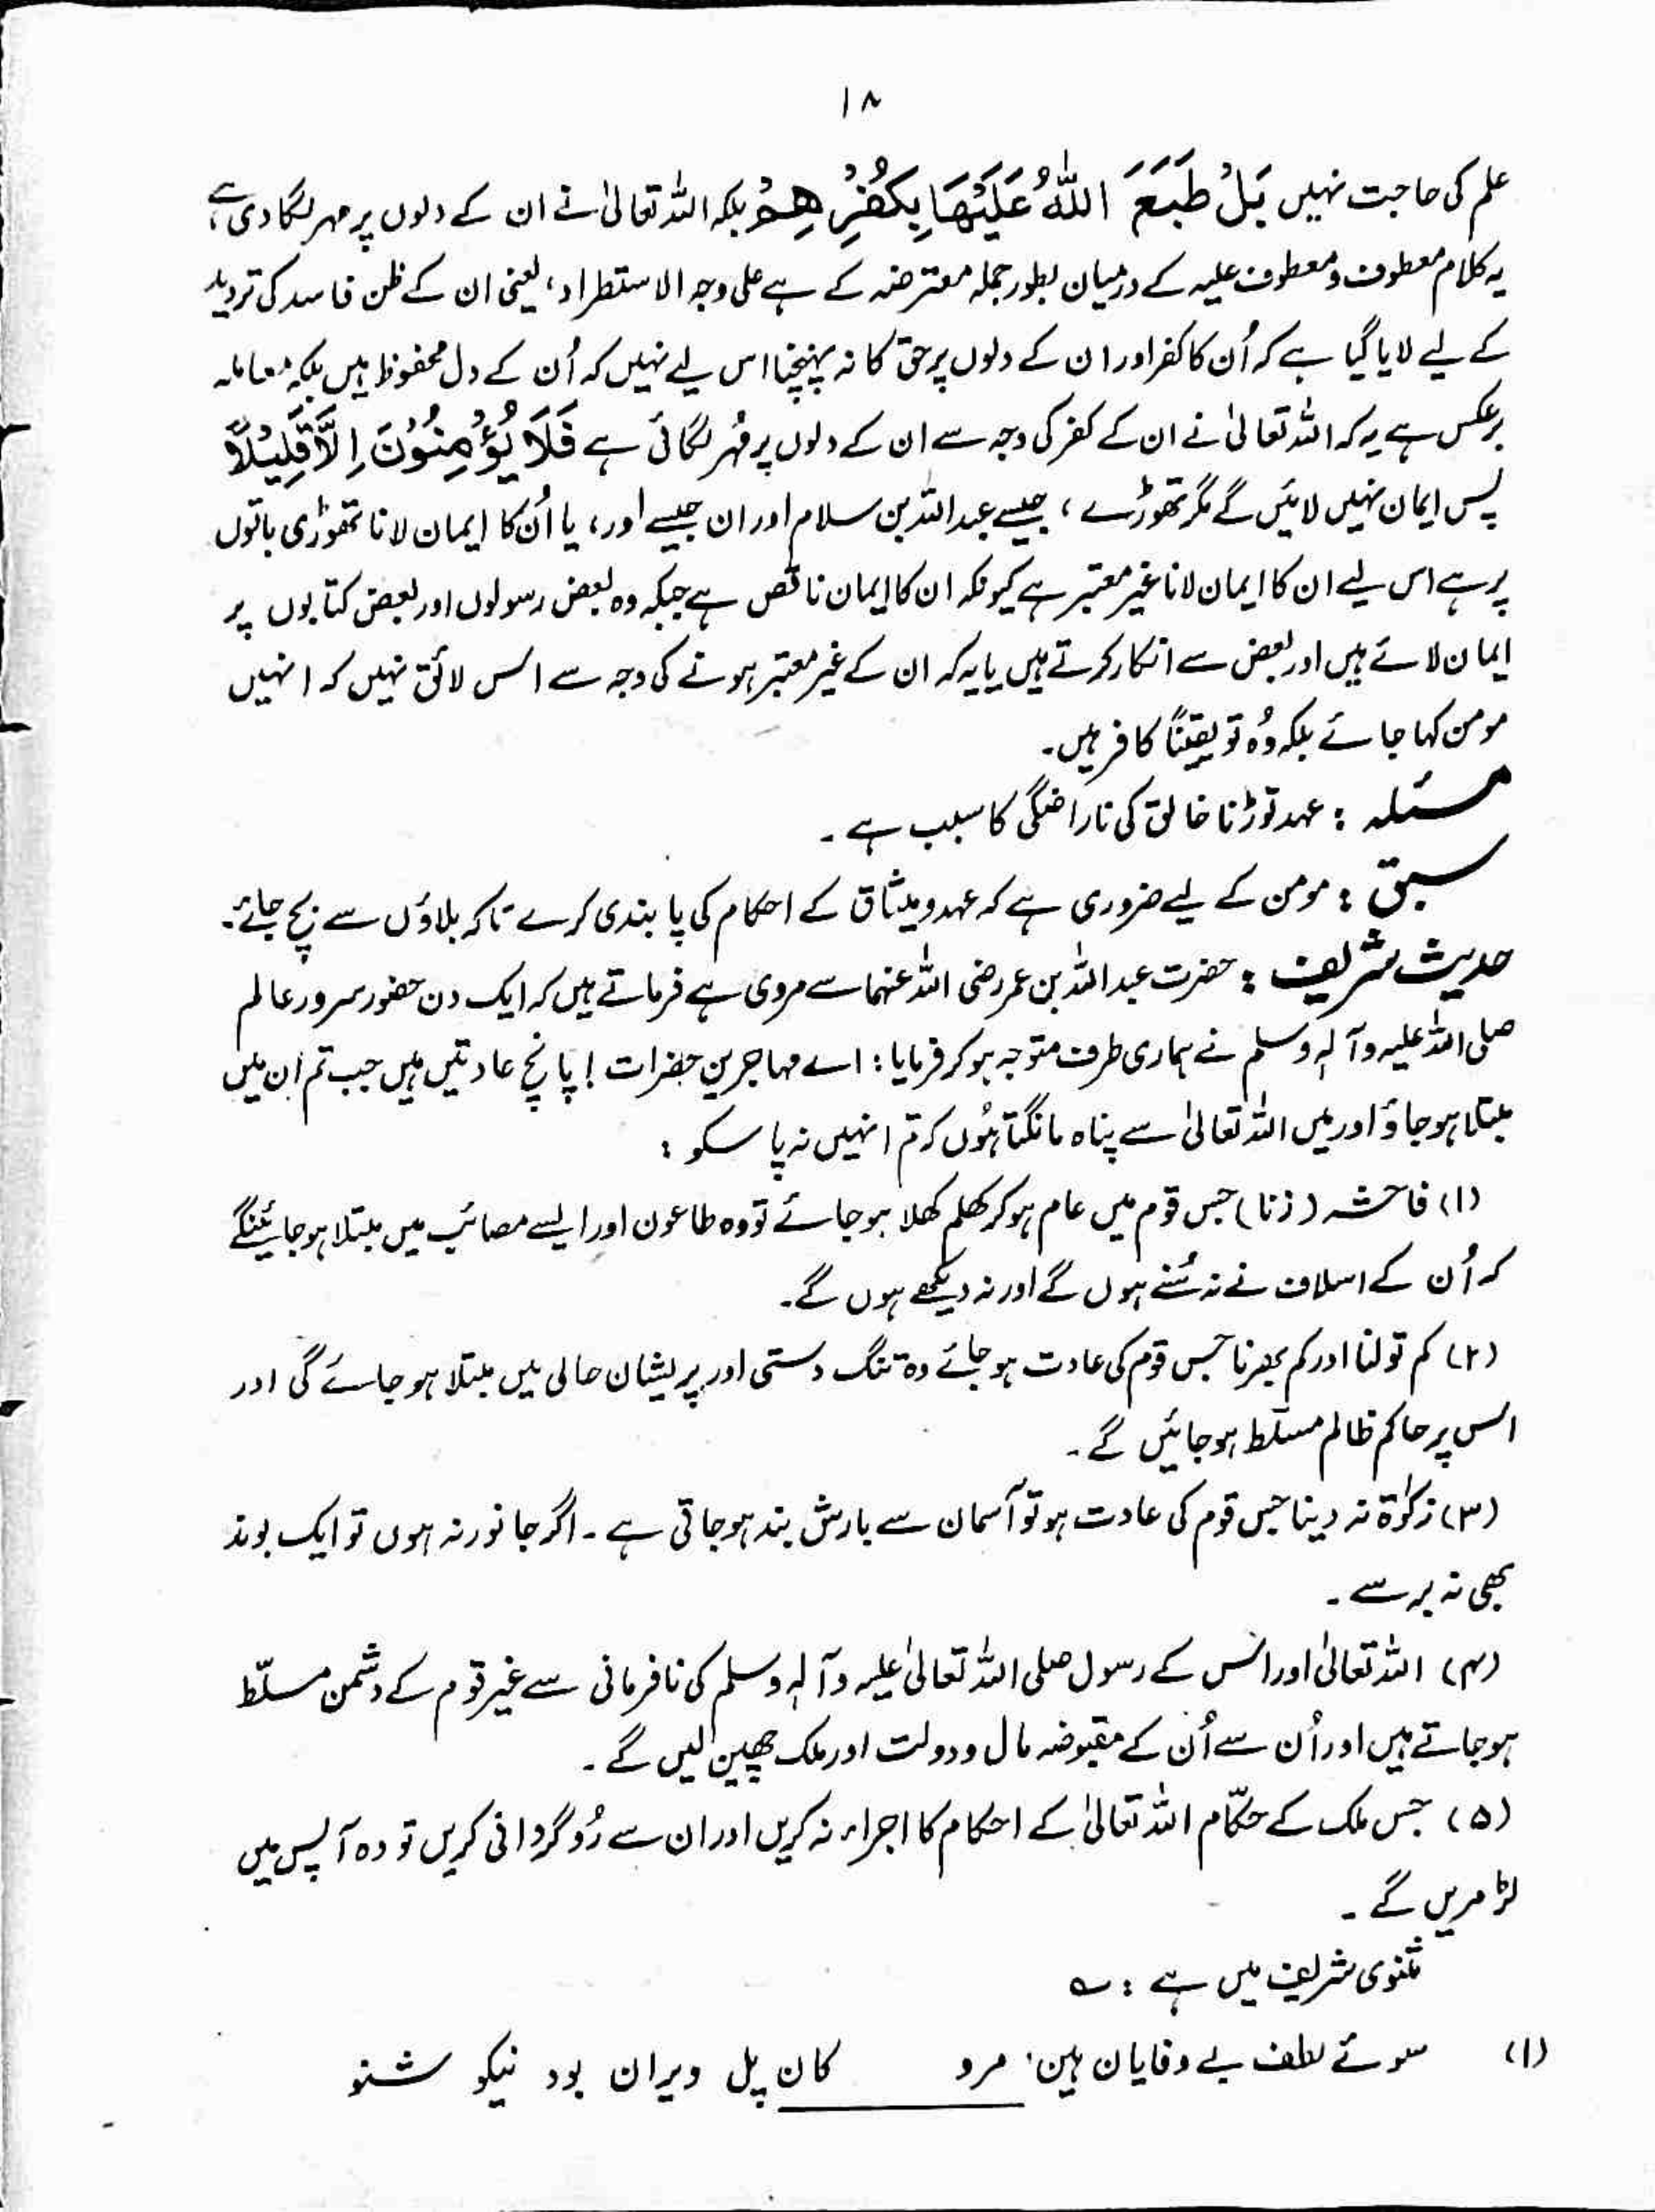 ۱۸
علم کی حاجت نہیں بَلْ طَبَعَ اللّٰهُ عَلَيْهَا بِكُفْرِهِمْ بلکہ اللہ تعالیٰ نے ان کے دلوں پر مہر لگا دی ہے،
یہ کلام معطوف و معطوف علیہ کے درمیان بطور جملہ معترضہ کے ہے علی وجہ الاستطراد، یعنی ان کے ظن فاسد کی تردید
کے لیے لایا گیا ہے کہ اُن کا کفر اور ان کے دلوں پر حق کا نہ پہنچنا اس لیے نہیں کہ اُن کے دل محفوظ ہیں بلکہ معاملہ
برعکس ہے یہ کہ اللہ تعالیٰ نے ان کے کفر کی وجہ سے ان کے دلوں پر مُہر لگائی ہے فَلَا يُؤْمِنُوْنَ اِلَّا قَلِيْلًا
پس ایمان نہیں لائیں گے مگر تھوڑے، جیسے عبداللہ بن سلام اور ان جیسے اور، یا اُن کا ایمان لانا تھوڑی باتوں
پر ہے اس لیے ان کا ایمان لانا غیر معتبر ہے کیونکہ ان کا ایمان ناقص ہے جبکہ وہ بعض رسولوں اور بعض کتابوں پر
ایمان لائے ہیں اور بعض سے انکار کرتے ہیں یا یہ کہ ان کے غیر معتبر ہونے کی وجہ سے اس لائق نہیں کہ انہیں
مومن کہا جائے بلکہ وُہ تو یقیناً کافر ہیں۔
مسئلہ : عہد توڑنا خالق کی ناراضگی کا سبب ہے ۔
سبق : مومن کے لیے ضروری ہے کہ عہد و میثاق کے احکام کی پابندی کرے تاکہ بلاؤں سے بچ جائے۔
حدیث شریف : حضرت عبداللہ بن عمر رضی اللہ عنہما سے مروی ہے فرماتے ہیں کہ ایک دن حضور سرور عالم
صلی اللہ علیہ وآلہٖ وسلم نے ہماری طرف متوجہ ہو کر فرمایا : اے مہاجرین حضرات ! پانچ عادتیں ہیں جب تم ان میں
مبتلا ہو جاؤ اور میں اللہ تعالیٰ سے پناہ مانگتا ہُوں کہ تم انہیں نہ پا سکو :
(۱) فاحشہ (زنا) جس قوم میں عام ہو کر کھلم کھلا ہو جائے تو وہ طاعون اور ایسے مصائب میں مبتلا ہو جائینگے
کہ اُن کے اسلاف نے نہ سُنے ہوں گے اور نہ دیکھے ہوں گے۔
(۲) کم تولنا اور کم بھرنا جس قوم کی عادت ہو جائے وہ تنگ دستی اور پریشان حالی میں مبتلا ہو جائے گی اور
اس پر حاکم ظالم مسلط ہو جائیں گے ۔
(۳) زکوٰۃ نہ دینا جس قوم کی عادت ہو تو آسمان سے بارش بند ہو جاتی ہے ۔ اگر جانور نہ ہوں تو ایک بوند
بھی نہ برسے ۔
(۴) اللہ تعالیٰ اور اس کے رسول صلی اللہ تعالیٰ علیہ وآلہٖ وسلم کی نافرمانی سے غیر قوم کے دشمن مسلّط
ہو جاتے ہیں اور اُن سے اُن کے مقبوضہ مال و دولت اور ملک چھین لیں گے ۔
(۵) جس ملک کے حکّام اللہ تعالیٰ کے احکام کا اجراء نہ کریں اور ان سے رُوگردانی کریں تو وہ آپس میں
لڑ مریں گے ۔
مثنوی شریف میں ہے : ؎
(۱) سوئے لطف بے وفایان ہین مرو کان پل ویران بود نیکو شنو